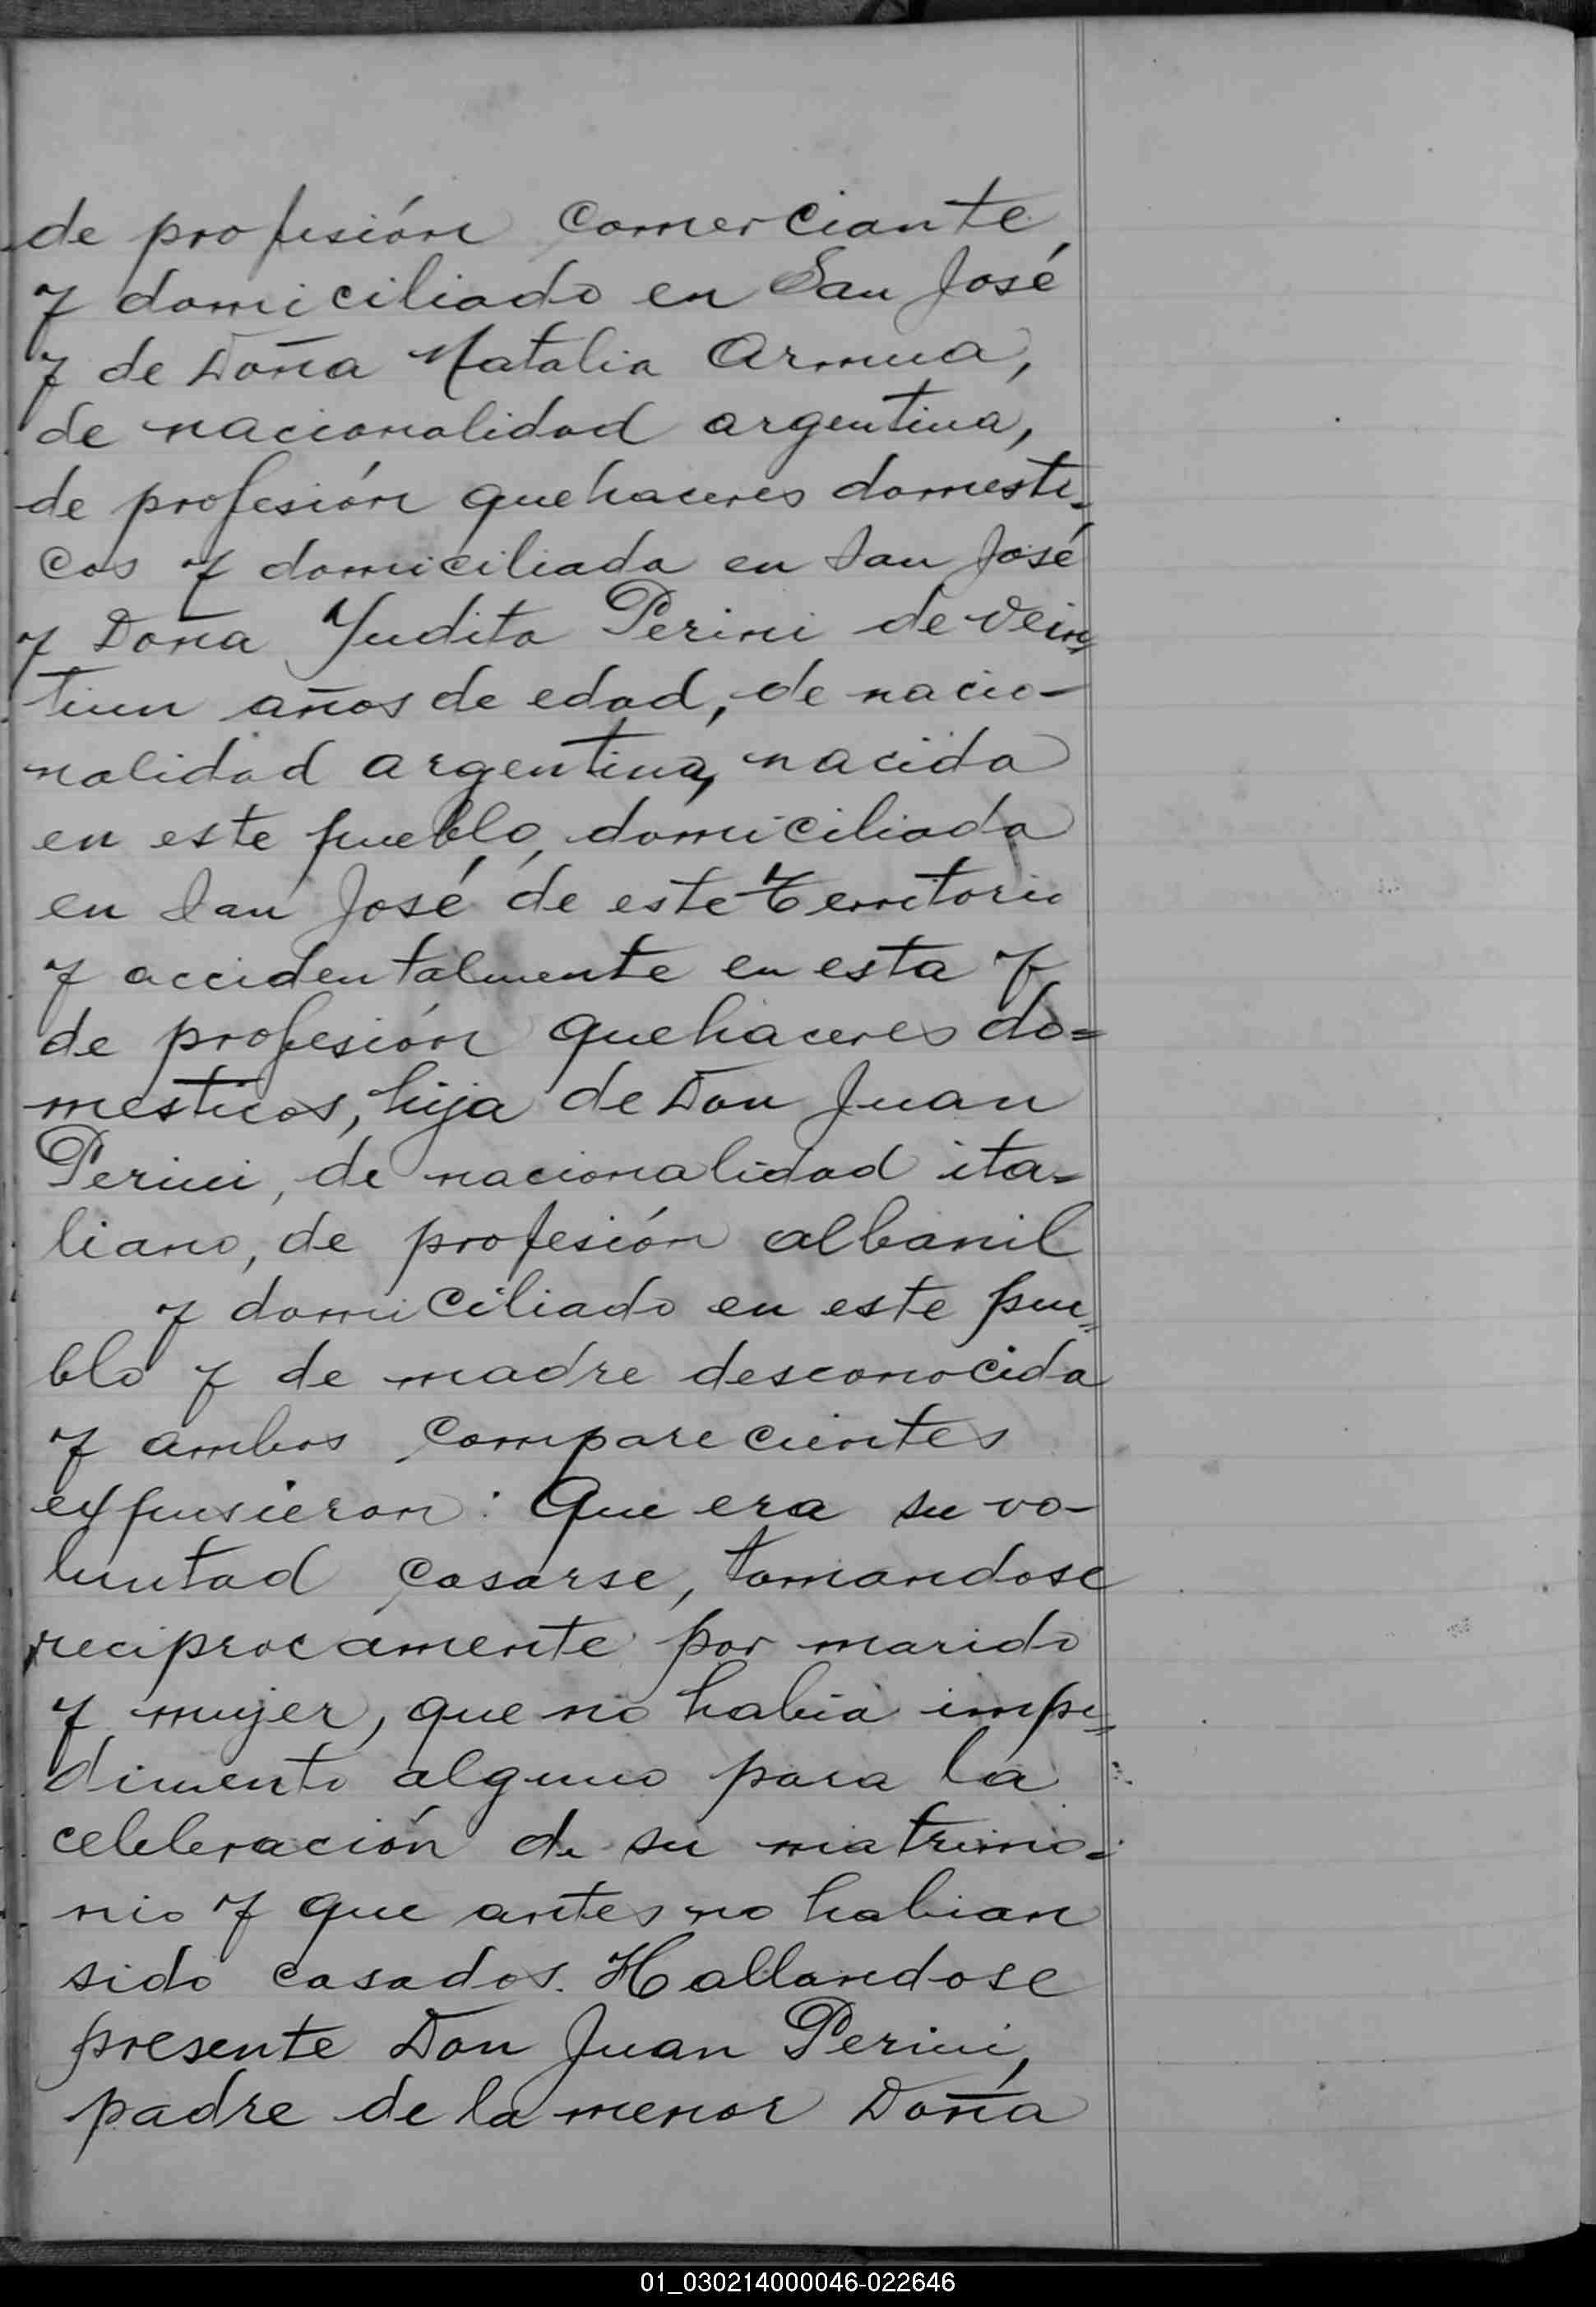 de profesión comerciante
y domiciliado en San José
y de Doña Natalia Armua,
de nacionalidad argentina,
de profesión quehaceres domesti=
cos y domiciliada en San José
y Doña Yudita Perini de vein=
tiun años de edad, de nacio-
nalidad argentina, nacida
en este pueblo, domiciliada
en San José de este Territorio
y accidentalmente en esta y
de profesión quehaceres do=
mesticos, hija de Don Juan
Perini, de nacionalidad ita=
liano, de profesión albanil
y domiciliado en este pue=
blo y de madre desconocida
y ambos comparecientes
expusieron: Que era su vo-
luntad casarse, tomandose
reciprocamente por marido
y mujer, que no habia impe=
dimento alguno para la
celebración de su matrimo=
nio y que antes no habian
sido casados. Hallandose
presente Don Juan Perini,
padre de la menor Doña
01_030214000046-022646